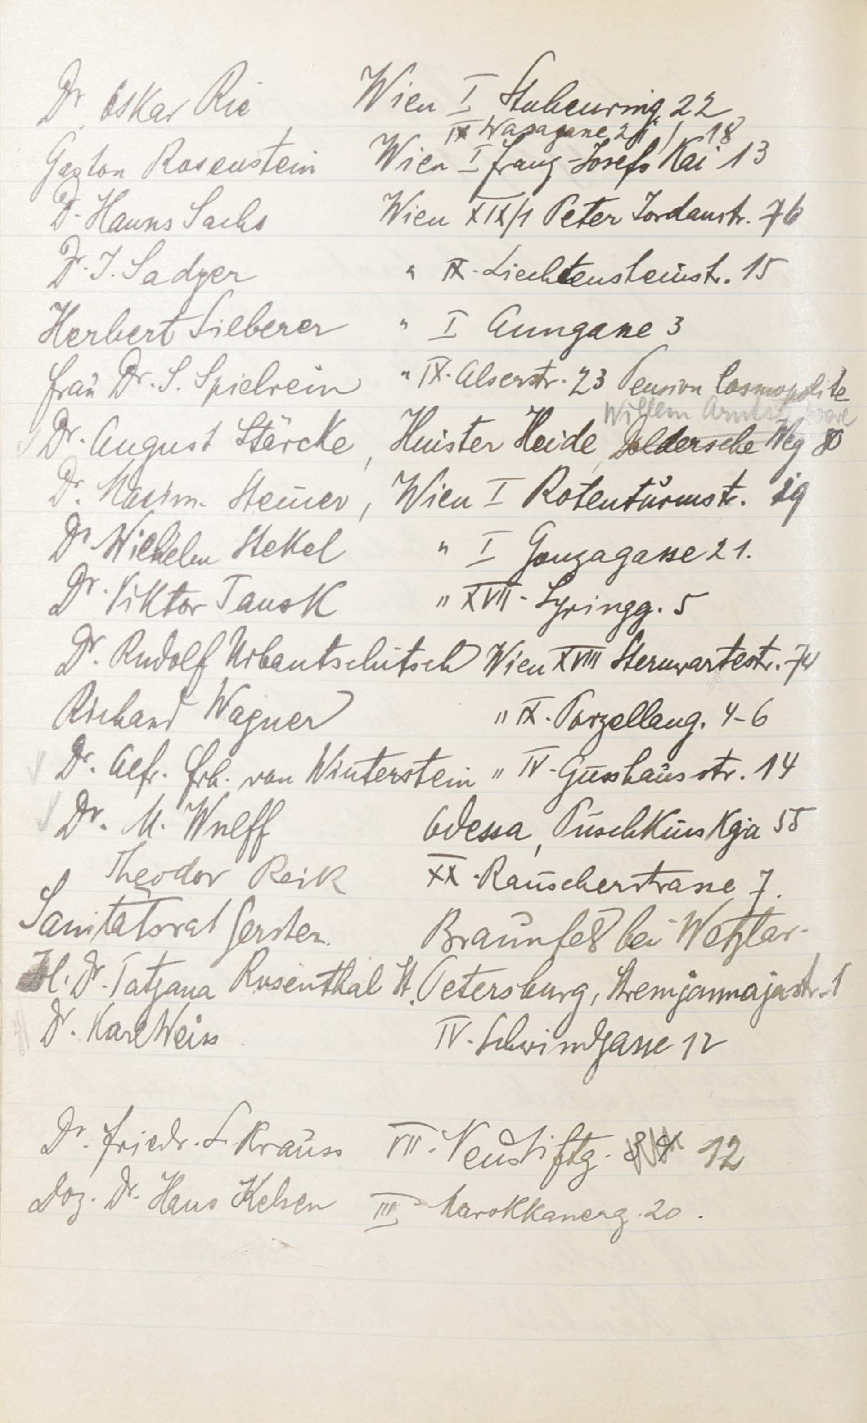 Dr. Oskar Rie Wien I Stubenring 22
IX Wasagasse 18
Gaston Rosenstein Wien I Franz-Josefs Kai 13
Dr. Hanns Sachs Wien XIX/1 Peter Jordanstr. 76
Dr. I. Sadger " IX. Liechtensteinstr. 15
Herbert Silberer " I Anngasse 3
Frau Dr. S. Spielrein " IX. Alserstr. 23 Pension Cosmopolite
Willem Arntsz
Dr. August Stärcke, Huister Heide, Doldersche Weg
Dr. Maxim. Steiner, Wien I Rotenturmstr. 19
Dr. Wilhelm Stekel " I Gonzagasse 21.
Dr. Viktor Tausk " XVII. Syringg. 5
Dr. Rudolf Urbantschitsch Wien XVIII Sternwartestr. 74
Richard Wagner " IX. Porzellang. 4-6
Dr. Alfr. Frh. von Winterstein " IV. Gusshausstr. 14
Dr. M. Wulff Odessa, Puschkinskja 55
Theodor Reik XX. Rauscherstrasse 7.
Sanitätsrat Gerster. Braunfels bei Wetzlar.
Dr. Tatjana Rosenthal St. Petersburg,
Dr. Karl Weiss IV. Schwindgasse 12
Dr. Friedr. S. Krauss VII. Neustiftg. 12
Doz. Dr. Hans Kelsen III Marokkanerg. 20.